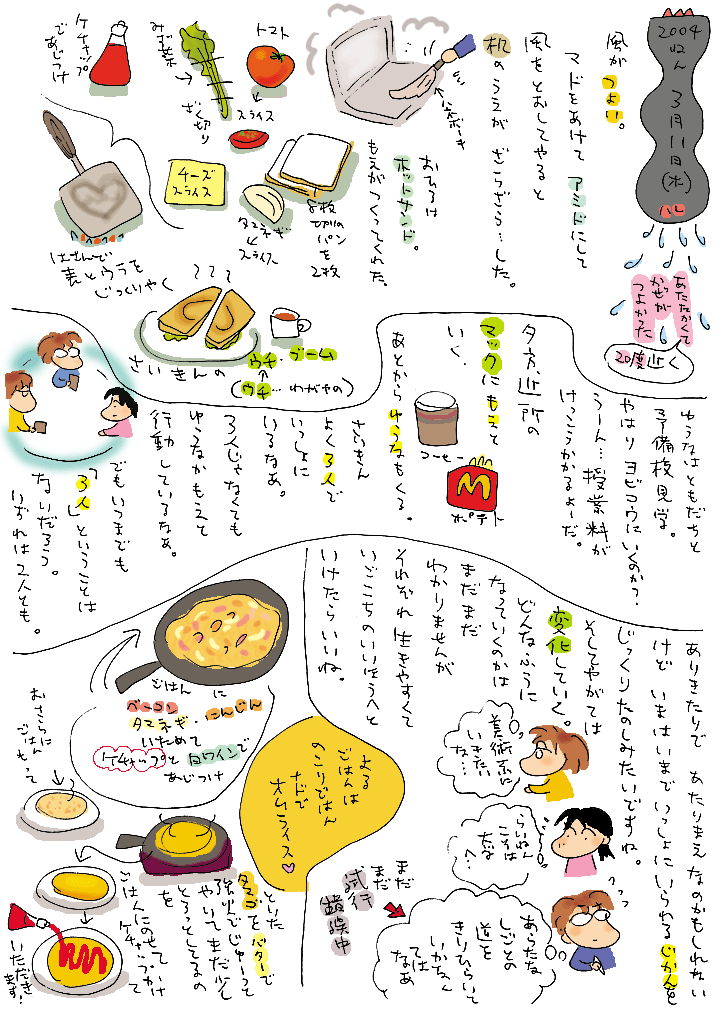 2004
ねん
3月11日(木)
ハレ
あたたかくて
かぜが
つよかった
20度近く
風が つよい。
マドをあけて アミドにして
風をとおしてやると
机のうえが ざらざら…した。
おひるは
ホットサンド。
もえがつくってくれた。
トマト
スライス
みず菜
ざく切り
ケチャップ
であじつけ
8枚
切りの
パン
を
2枚
チーズ
スライス
タマネギ
スライス
はさんで
表とウラを
じっくりやく
さいきんの
ウチブーム
(ウチ…わがやの)
夕方、近所の
マックにもえと
いく。
あとからゆうなもくる。
コーヒー
ポテト
ゆうなはともだちと
予備校見学。
やはり ヨビコウにいくのか?
うーん…授業料が
けっこうかかるよーだ。
さいきん
よく3人で
いっしょに
いるなあ。
3人じゃなくても
ゆうなかもえと
行動しているなあ。
でもいつまでも
「3人」ということは
ないだろう。
いずれは2人とも。
ありきたりで あたりまえなのかもしれない
けど いまはいまで いっしょにいられるじかんを
じっくりたのしみたいですね。
そしてやがては
変化していく。
どんなふうに
なっていくのかは
まだまだ
わかりませんが
それぞれ生きやすくて
いごこちのいいほうへと
いけたらいいね。
美術系に
いきたい
なぁ…
らいねん
こそは
あらたな
しごとの
道を
きりひらいて
いかなく
ては
なあ
まだ
まだ
試行
錯誤中
よる
ごはんは
のこりごはん
ナドで
オムライス♡
ごはん に
ベーコン
タマネギ・にんじん
いためて
ケチャップと白ワインで
あじつけ
おさらに
ごはん
もって
といた
タマゴをバターで
強火でじゅーって
やいてまだ少し
とろっとしてるの
を
ごはんにのせて
ケチャップかけ
いただき
ます!